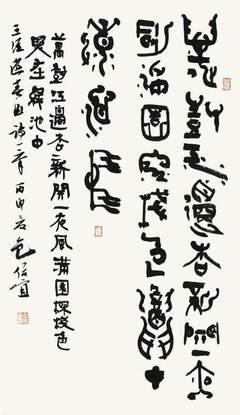 萬樹江邊杏新開一夜
風滿園深淺色照在
綠波中
萬樹江邊杏新開一夜風滿園深淺色
照在綠波中
王涯遊春曲詩一首丙申